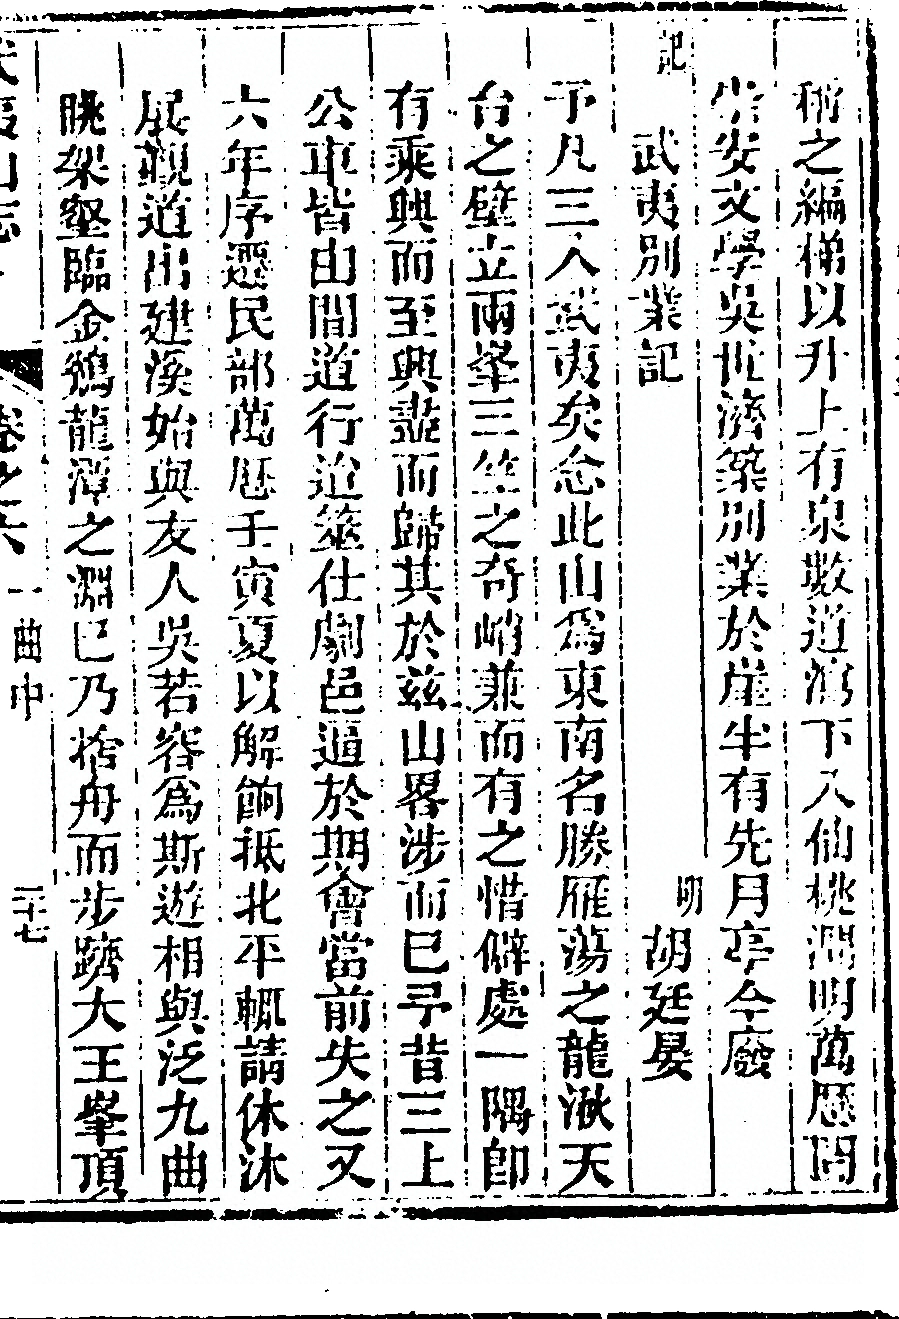 稱之編梯以升上有泉數道瀉下入仙桃澗明萬厯間
崇安文學吳世濟築別業於崖半有先月亭今廢
記
武夷別業記
明胡廷晏
予凡三入武夷矣念此山爲東南名勝雁蕩之龍湫天
台之壁立兩峯三竺之奇峭兼而有之惜僻處一隅卽
有乘興而至興盡而歸其於茲山畧涉而已予昔三上
公車皆由間道行迨筮仕劇邑逼於期會當前失之又
六年序遷民部萬厯壬寅夏以解餉抵北平輒請休沐
展覲道出建溪始與友人吳若容爲斯遊相與泛九曲
眺架壑臨金鷄龍潭之淵已乃捨舟而步躋大王峯頂
武夷山志
卷之六
一曲中
三十七